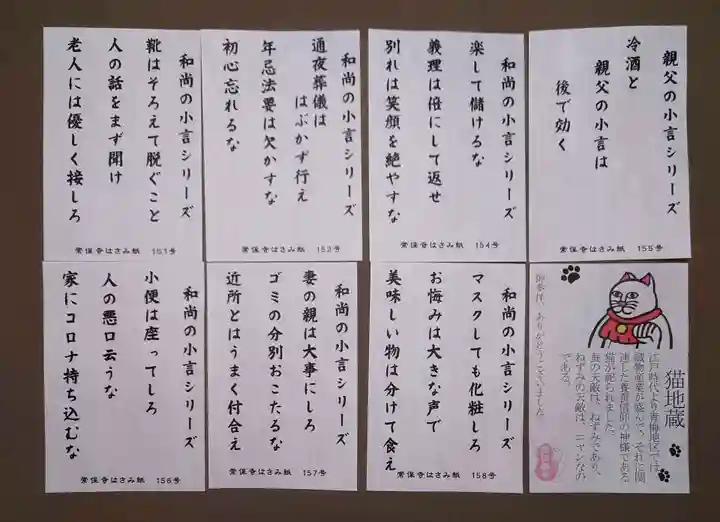 和尚の小言シリーズ
靴はそろえて脱ぐこと
人の話をまず聞け
老人には優しく接しろ
常保寺はさみ紙　151号
和尚の小言シリーズ
通夜葬儀は
はぶかず行え
年忌法要は欠かすな
初心忘れるな
常保寺はさみ紙　152号
和尚の小言シリーズ
楽して儲けるな
義理は倍にして返せ
別れは笑顔を絶やすな
常保寺はさみ紙　154号
親父の小言シリーズ
冷酒と
親父の小言は
後で効く
常保寺はさみ紙　155号
和尚の小言シリーズ
小便は座ってしろ
人の悪口云うな
家にコロナ持ち込むな
常保寺はさみ紙　156号
和尚の小言シリーズ
妻の親は大事にしろ
ゴミの分別おこたるな
近所とはうまく付合え
常保寺はさみ紙　157号
和尚の小言シリーズ
マスクしても化粧しろ
お悔みは大きな声で
美味しい物は分けて食え
常保寺はさみ紙　158号
猫地蔵
江戸時代より青梅地区では
織物産業が盛んで、それに関
連した養蚕信仰の神様である
猫が祀られました。
蚕の天敵は、ねずみであり、
ねずみの天敵は、ニャンなの
である。
御参拝、ありがとうございました